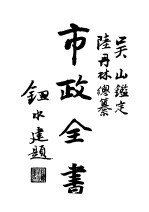 吴山鑑定
陸丹林總纂
市政全書
鈕永建題